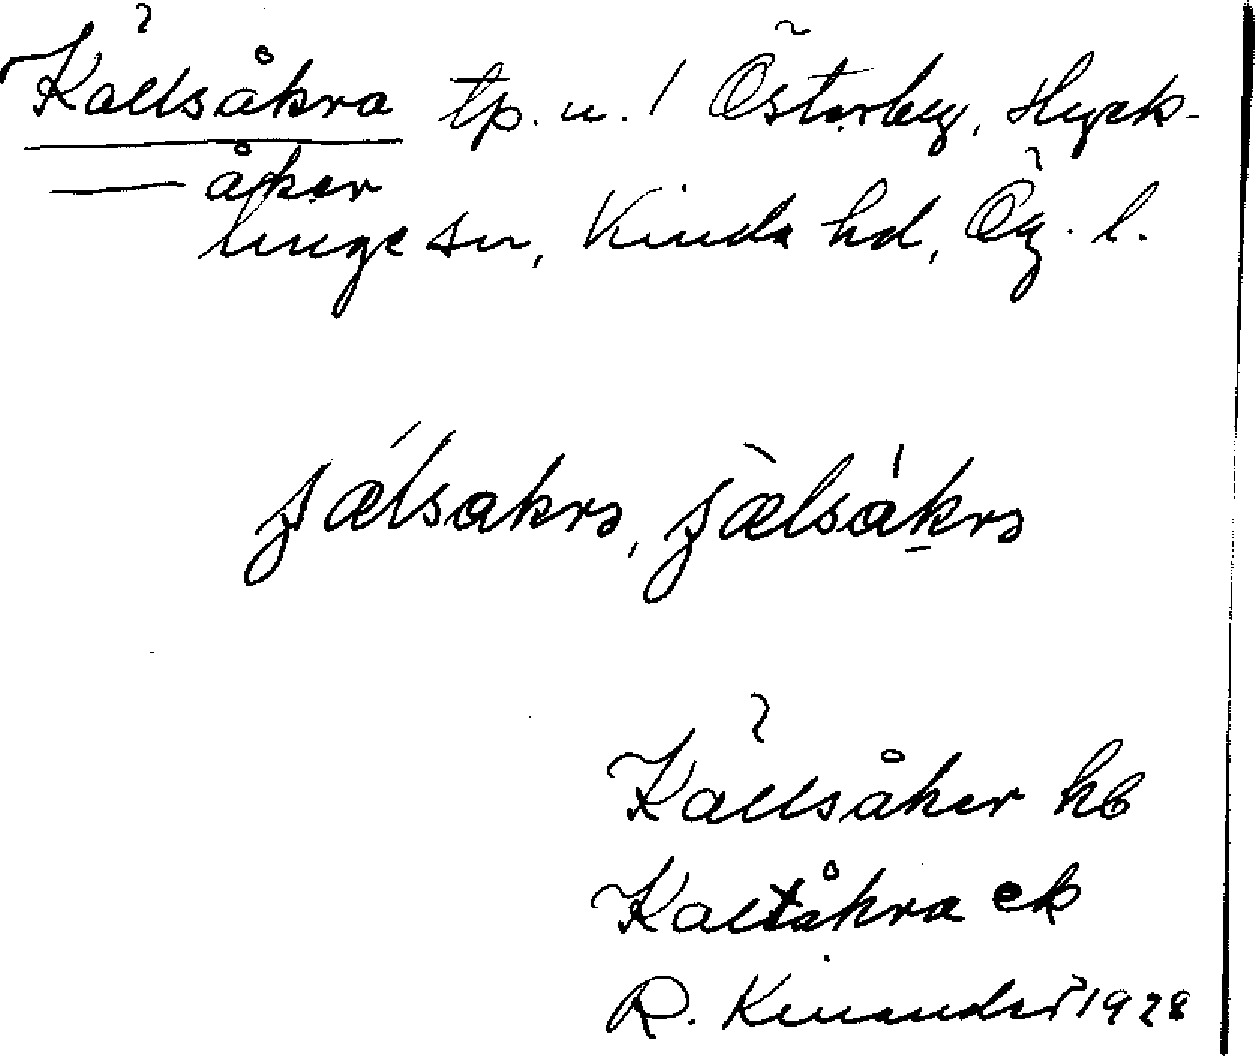 Källsåkra tp. u. / Österby, Hyck-
— åker
linge sn, Kinda hd, Ög. l.
ʂælsakrɔ, ʂælsåkrɔ
Källsåker hb
Kaltåkra ek
R. Kinander 1928